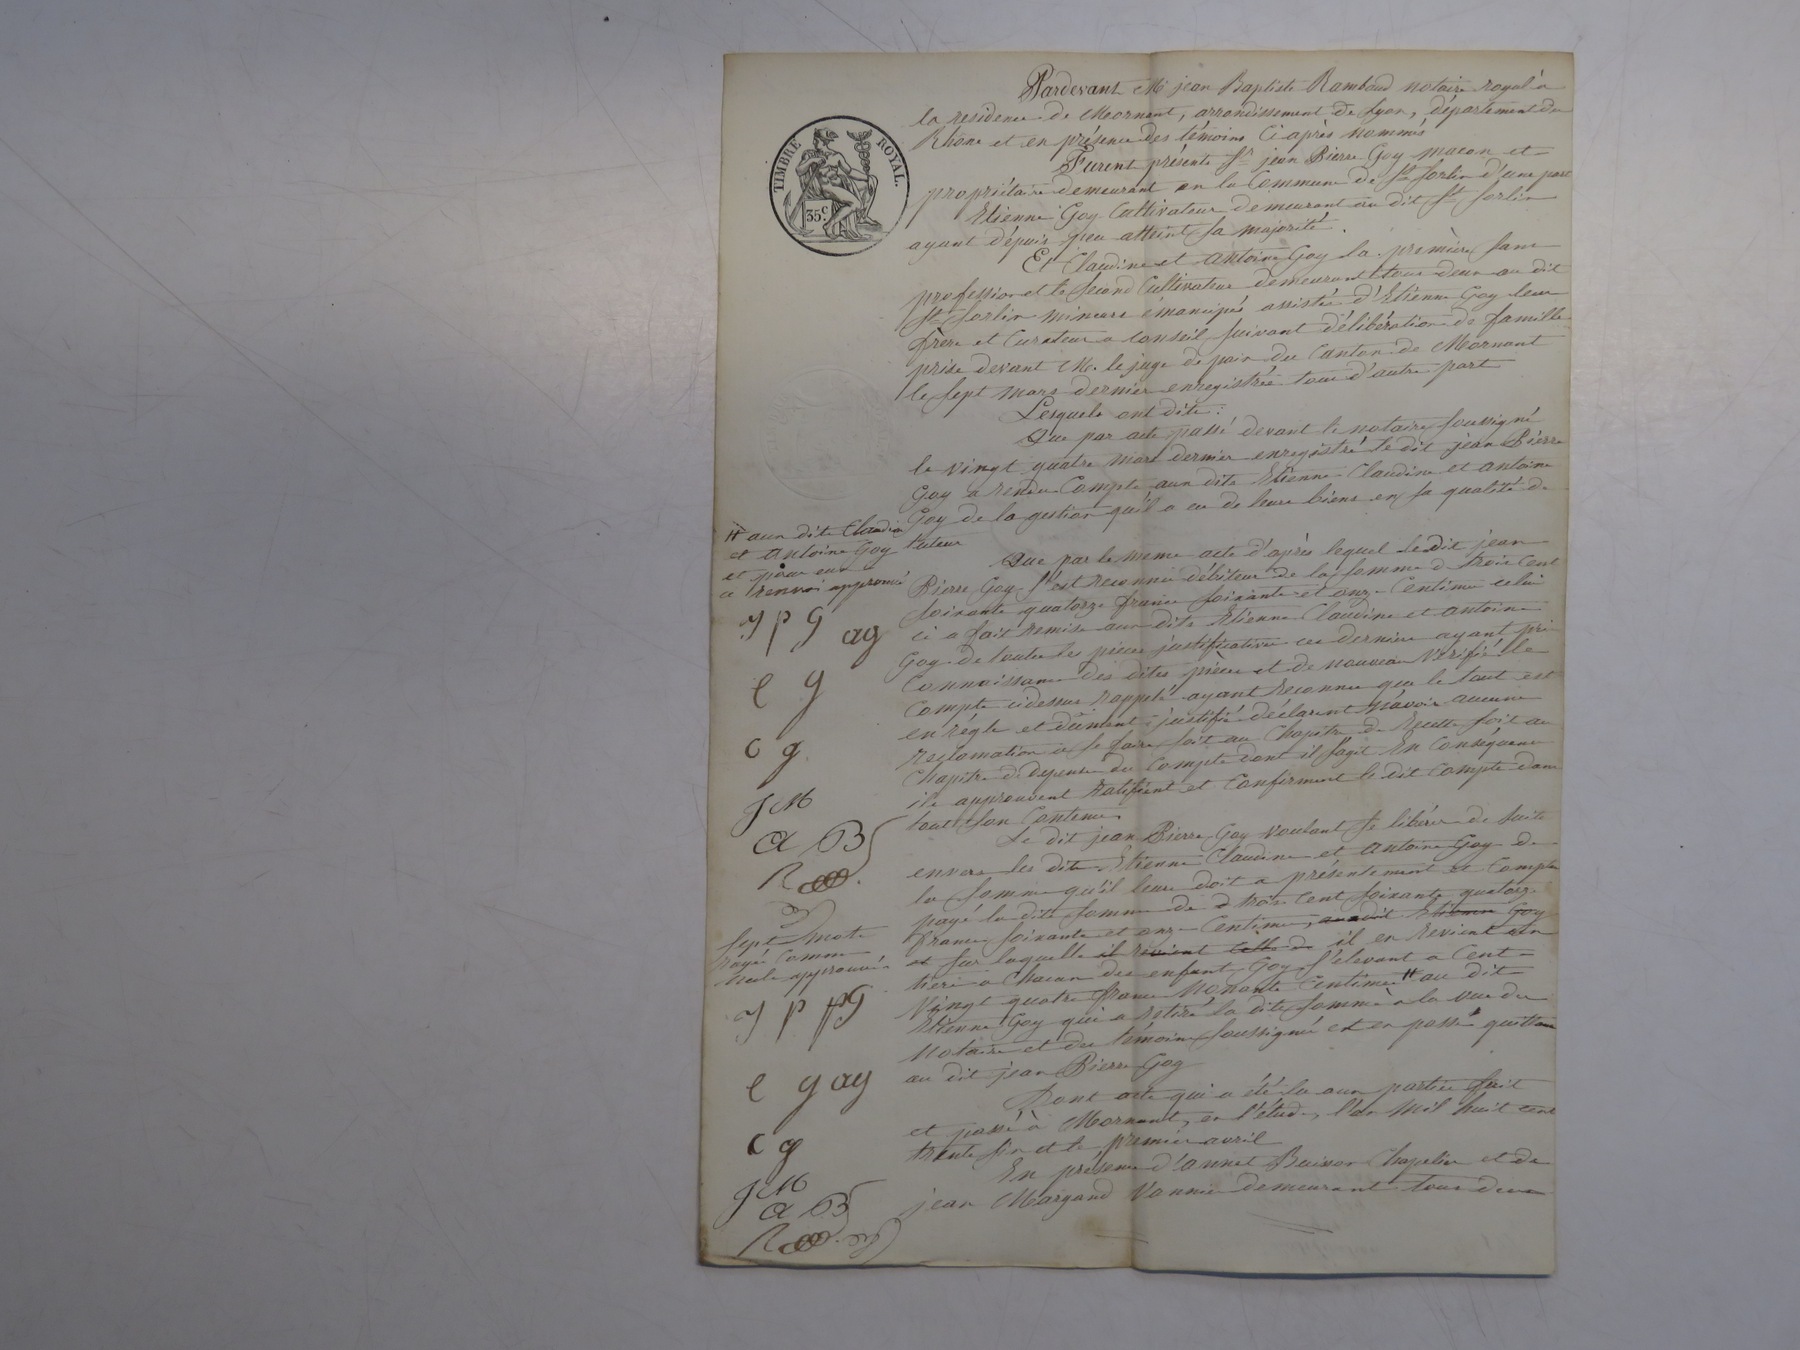 TIMBRE ROYAL.
35 c.
Pardevant Me jean Baptiste Rambaud notaire royal à
la residence de Mornant, arrondissement de Lyon, département du
Rhone et en présence des témoins Ci après nommés
Furent présents Sr jean Pierre Goy macon et
propriétaire demeurant en la Commune de St Sorlin d'une part
Etienne Goy Cultivateur demeurant au dit St Sorlin
ayant dépuis peu atteint sa majorité.
Et Claudine et Antoine Goy la première sans
profession et le Second Cultivateur demeurant tous deux au dit
St Sorlin mineurs émancipés assistés d'Etienne Goy leur
frère et Curateur a Conseil suivant délibération de famille
prise devant M. le juge de paix du Canton de Mornant
le sept mars dernier enregistrée tous d'autre part
Lesquels ont dits :
Que par acte passé devant le notaire soussigné
le vingt quatre mars dernier enregistré le dit jean Pierre
Goy a rendu Compte aux dits Etienne Claudine et Antoine
Goy de la gestion qu'il a eu de leurs biens en sa qualité de
tuteur
Que par le meme acte d'après lequel le dit jean
Pierre Goy s'est reconnu débiteur de la somme d trois Cent
soixante quatorze francs soixante et onze Centimes celui
ci a fait remise aux dits Etienne Claudine et Antoine
Goy de toutes les pièces justificatives ces derniers ayant pris
Connaissance des dites pièces et de nouveau Vérifié le
Compte cidessus rappelé ayant reconnu que le tout est
en règle et dûment justifié déclarent n'avoir aucune
reclamation à se faire soit au Chapitre de Recette soit au
Chapitre d. dépenses du Compte dont il s'agit En Conséquence
ils approuvent ratifient et Confirment le dit Compte dans
tout son Contenu
Le dit jean Pierre Goy voulant se libérer de suite
envers les dits Etienne Claudine et Antoine Goy de
la somme qu'il leur doit a présentement et Compte
payé la dite somme de trois Cent soixante quatorze
francs soixante et onze Centimes, au dit Etienne Goy
et sur laquelle il revient il en revient un
tiers à Chacun des enfants Goy s'élevant a Cent
Vingt quatre francs Nonante Centimes # au dit
Etienne Goy qui a retiré la dite somme à la vue du
Notaire et des témoins soussignés et en passe quittance
au dit jean Pierre Goy
Dont acte qui a été lu aux parties fait
et passé à Mornant, en l'étude, l'an mil huit cent
trente six et le premier avril
En présence d'annet Buisson Chapelier et de
jean Margand Vannier demeurant tous deux
# aux dits Claudine
et Antoine Goy
et pour eux
ce renvoi approuvé
J P G ag
e g
c g.
J M
a B
R
Sept mots
rayés Comme
nuls approuvés
J p pG
e g ag
c g
J M
a B
R